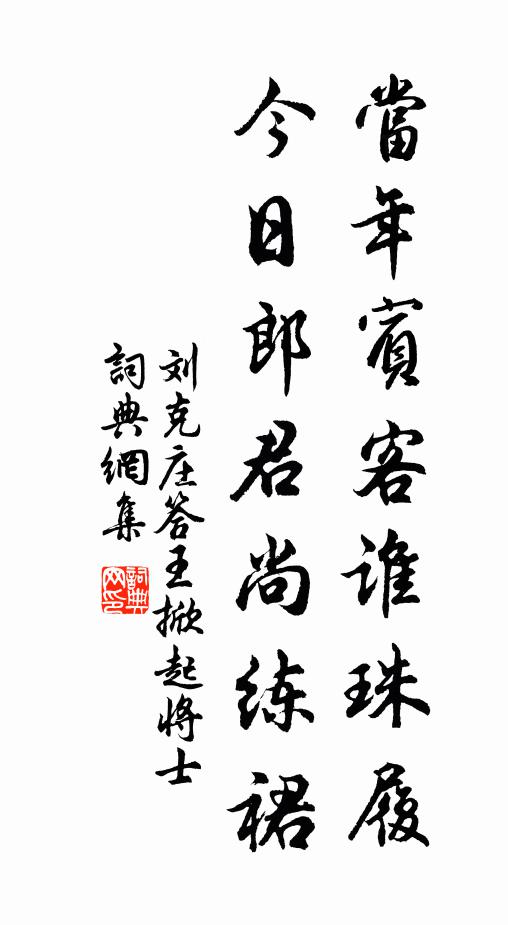 當年賓客誰珠履
今日郎君尚练裙
刘克庄答王掀起将士
詞典網集
詞典网印